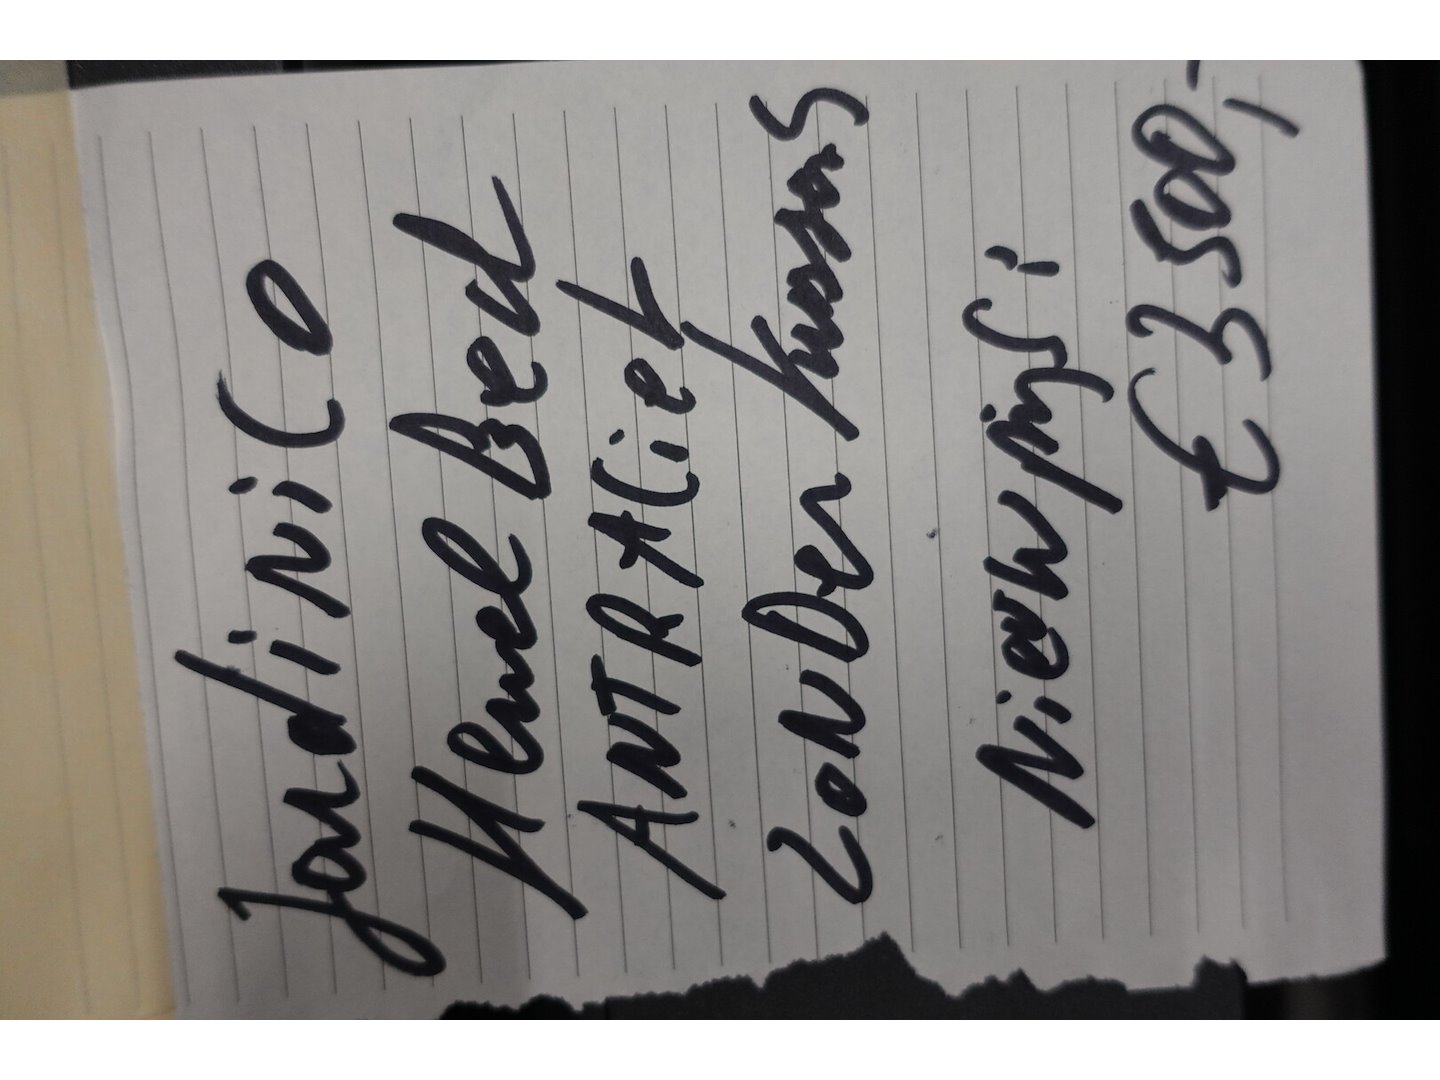 Jardinico
Hemel Bed
ANTRACiet
ZoNDer kussens
Nieuwprijs:
€ 3500,-